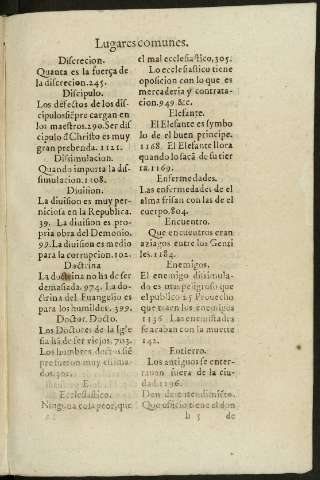 Lugares comunes.
Discrecion.
Quanta es la fuerça de
la discrecion.245.
Discipulo.
Los defectos de los dis-
cipulos siẽpre cargan en
los maestros.290.Ser dis
cipulo d̃ Christo es muy
gran prebenda. 1121.
Dissimulacion.
Quando importa la dis-
simulacion.1108.
Diuision.
La diuision es muy per-
niciosa en la Republica.
39. La diuision es pro-
pria obra del Demonio.
99.La diuision es medio
para la corrupcion.102.
Doctrina
La doctrina no ha de ser
demasiada. 974. La do-
ctrina del Euangelio es
para los humildes. 399.
Doctor. Docto.
Los Doctores de la Igle
sia ha de ser viejos. 703.
Los hombres doctos siẽ
pre fueron muy estima-
dos.302.
E.
Ecclesiastico.
Ninguna cosa peor, que
el mal ecclesiastico,305.
Lo ecclesiastico tiene
oposicion con lo que es
mercaderia y contrata-
cion.949.&c.
Elefante.
El Elefante es symbo
lo de el buen principe.
1168. El Elefante llora
quando lo sacã de su tier
ra.1169.
Enfermedades.
Las enfermedades de el
alma frisan con las de el
cuerpo.804.
Encuentro.
Que encuentros eran
aziagos entre los Genti
les.1184.
Enemigos.
El enemigo dissimula-
do es mas peligroso que
el publico 25 Prouecho
que traen los enemigos
1136 Las enemistades
se acaban con la muerte
142.
Entierro.
Los antiguos se enter-
rauan fuera de la ciu-
dad.1196.
Don de entendimiẽto.
Que oficio tiene el don
b 5 de